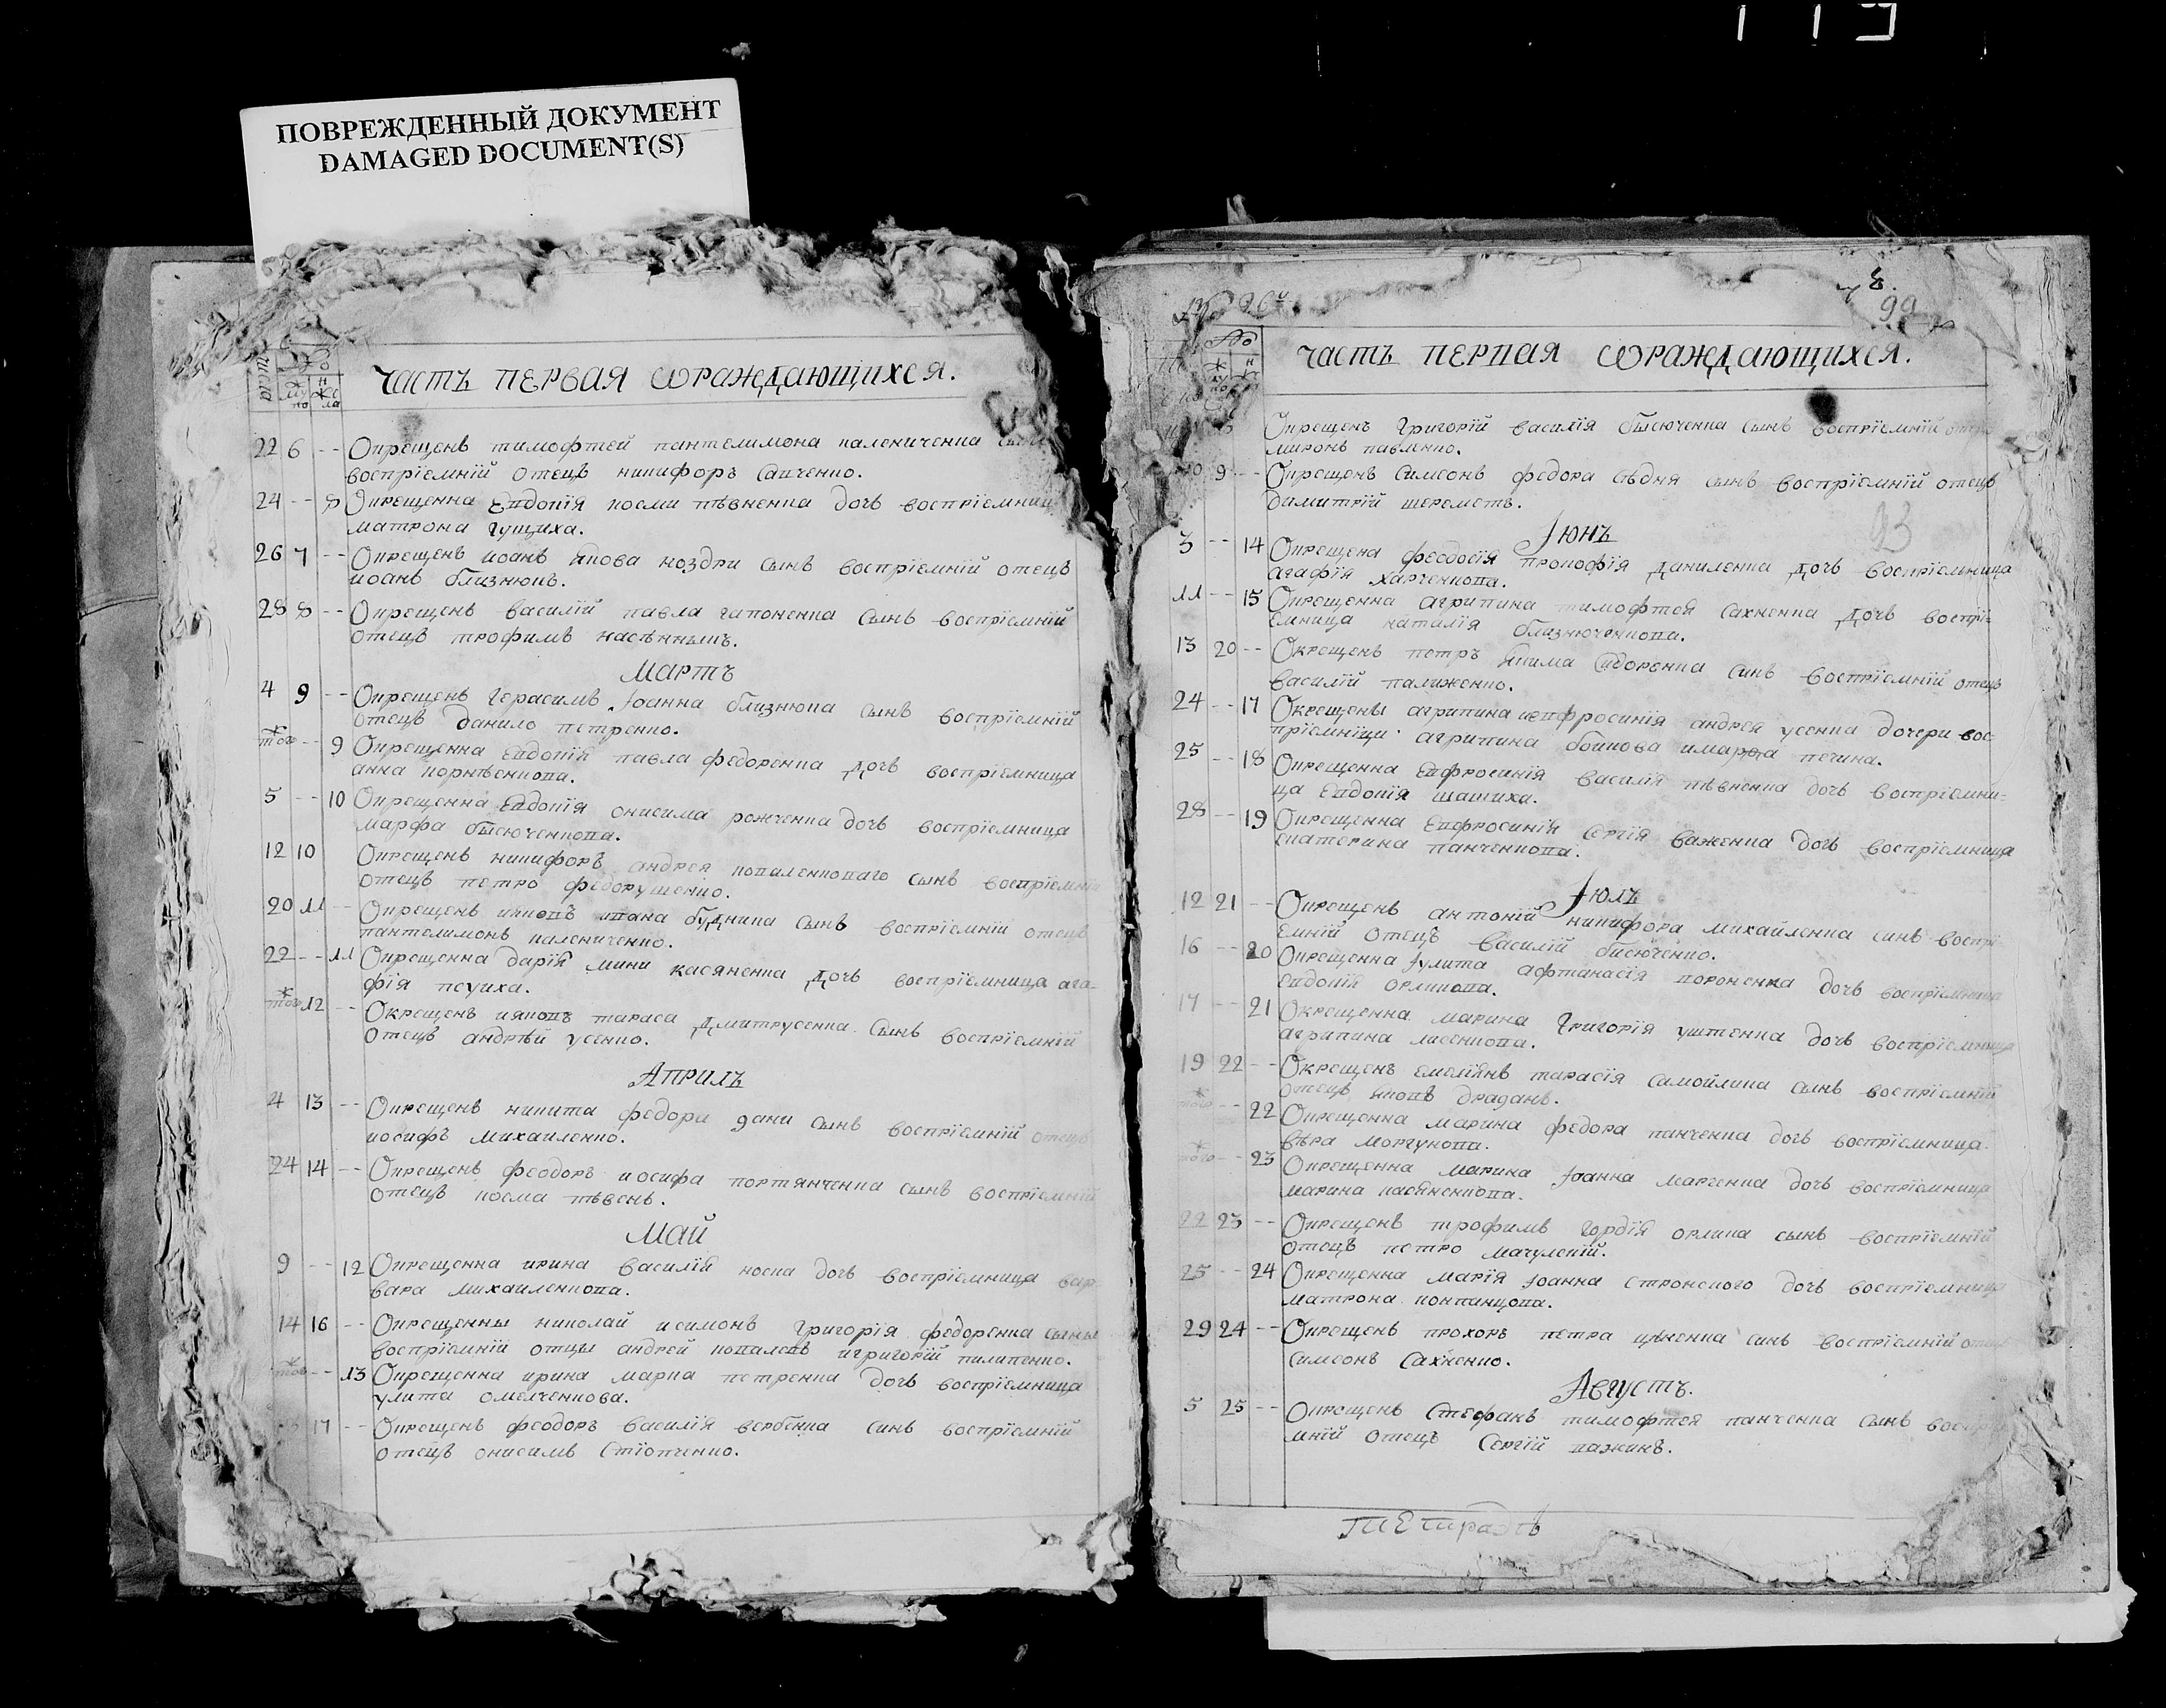 ПОВРЕЖДЕННЫЙ ДОКУМЕНТ
DAMAGED DOCUMENT(S)
ЧАСТЬ ПЕРВАЯ ѠРАЖДАЮЩИХСЯ.
22 6 -- Окрещенъ тимофтей пантелимона калениченка сынъ
восприемнїй отецъ никифоръ Савченко.
24 -- 8 Окрещенна Евдокїя косми пѣвненка дочь восприемница
матрона гущиха.
26 7 -- Окрещенъ иоанъ якова ноздри сынъ воспрїемнїй отецъ
иоанъ близнюкъ.
28 8 -- Окрещенъ василїй павла гапоненка сынъ воспрїемнїй
отецъ трофимъ
Мартъ
4 9 -- Окрещенъ герасимъ Іоанна близнюка сынъ воспрїемнїй
отецъ данило петренко.
того -- 9 Окрещенна Евдокїя павла федоренка дочь воспрїемница
анна корнѣенкова.
5 -- 10 Окрещенна Евдокїя онисима рожченка дочь воспрїемница
марфа бысюченкова.
12 10 Окрещенъ никифоръ андрея коваленковаго сынъ воспрїемнїй
отецъ петро федорушенко.
20 11 -- Окрещенъ иаковъ ивана будника сынъ воспрїемнїй отецъ
пантелимонъ калениченко.
22 -- 11 Окрещенна дарїя мини касяненка дочь воспрїемница ага-
фїя псуиха.
того 12 -- Окрещенъ иаковъ тараса дмитрусенка сынъ воспрїемнїй
отецъ андрѣй усенко.
Априлъ
4 13 -- Окрещенъ никита федора сынъ воспрїемнїй отецъ
иосифъ михайленко.
24 14 -- Окрещенъ феодоръ иосифа портянченка сынъ воспрїемнїй
отецъ косма пѣвень.
Май
9 -- 12 Окрещенна ирина василїя носка дочь воспрїемница вар
вара михайленкова.
14 16 -- Окрещенны николай исимонъ григорїя федоренка сыны
воспрїемнїй отцы андрей ковалевъ игригорїй пилипенко.
того -- 13 Окрещенна ирина марка петренка дочь воспрїемница
улита омелченкова.
17 -- Окрещенъ феодоръ василїя вербенка синъ воспрїемнїй
отецъ онисимъ Стїопченко.
99
ЧАСТЬ ПЕРВАЯ ѠРАЖДАЮЩИХСЯ.
Окрещенъ григорїй василїя бысюченка сынъ воспрїемнїй отецъ
миронъ павленко.
9 -- Окрещенъ Симеонъ федора сынъ воспрїемнїй отецъ
димитрїй шереметъ.
Іюнъ
93
3 -- 14 Окрещена феодосїя прокофїя даниленка дочь воспрїемница
агафїя харченкова.
11 -- 15 Окрещенна агрипина тимофтея сахненка дочь воспрї-
емница наталїя близнюченкова.
13 20 -- Окрещенъ петръ якима Сидоренка синъ воспрїемнїй отецъ
василїй палиженко.
24 -- 17 Окрещены агрипина иевфросинїя андрея усенка дочери вос
прїемници агрипина бойкова имарва печина.
25 -- 18 Окрещенна Евфросинїя василїя пѣвненка дочь воспрїемни-
ца Евдокїя шашиха.
28 -- 19 Окрещенна Евфросинїя Сергїя важенка дочь воспрїемница
екатерина панченкова.
Іюлъ
12 21 -- Окрещенъ антонїй никифора михайленка синъ воспрї
емнїй отецъ василїй бисюченко.
16 -- 20 Окрещенна іулита афтанасїя вороненка дочь воспрїемница
евдокїя орликова.
17 -- 21 Окрещенна марина григорїя уштенка дочь воспрїемница
агрипина лисенкова.
19 22 -- Окрещенъ емелїянъ тарасїя самойлика сынъ воспрїемнїй
отецъ яковъ драданъ.
того -- 22 Окрещенна марина федора панченка дочь воспрїемница
вѣра моргункова.
того -- 23 Окрещенна марина Іоанна марченка дочь воспрїемница
марина касяненкова.
22 23 -- Окрещенъ трофимъ гордїя орлика сынъ воспрїемнїй
отецъ петро мачулскїй.
25 -- 24 Окрещенна марїя Іоанна стронского дочь воспрїемница
матрона конпанцова.
29 24 -- Окрещенъ прохоръ петра цѣненка синъ воспрїемнїй отецъ
симеонъ Сахненко.
Августъ.
5 25 -- Окрещенъ Стефанъ тимофтея панченка сынъ воспрїе
мнїй отецъ Сергїй важинъ.